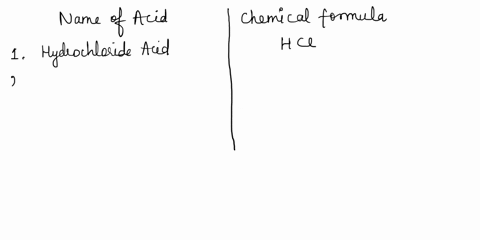 Name of Acid
Chemical formula
1. Hydrochloride Acid
HCl